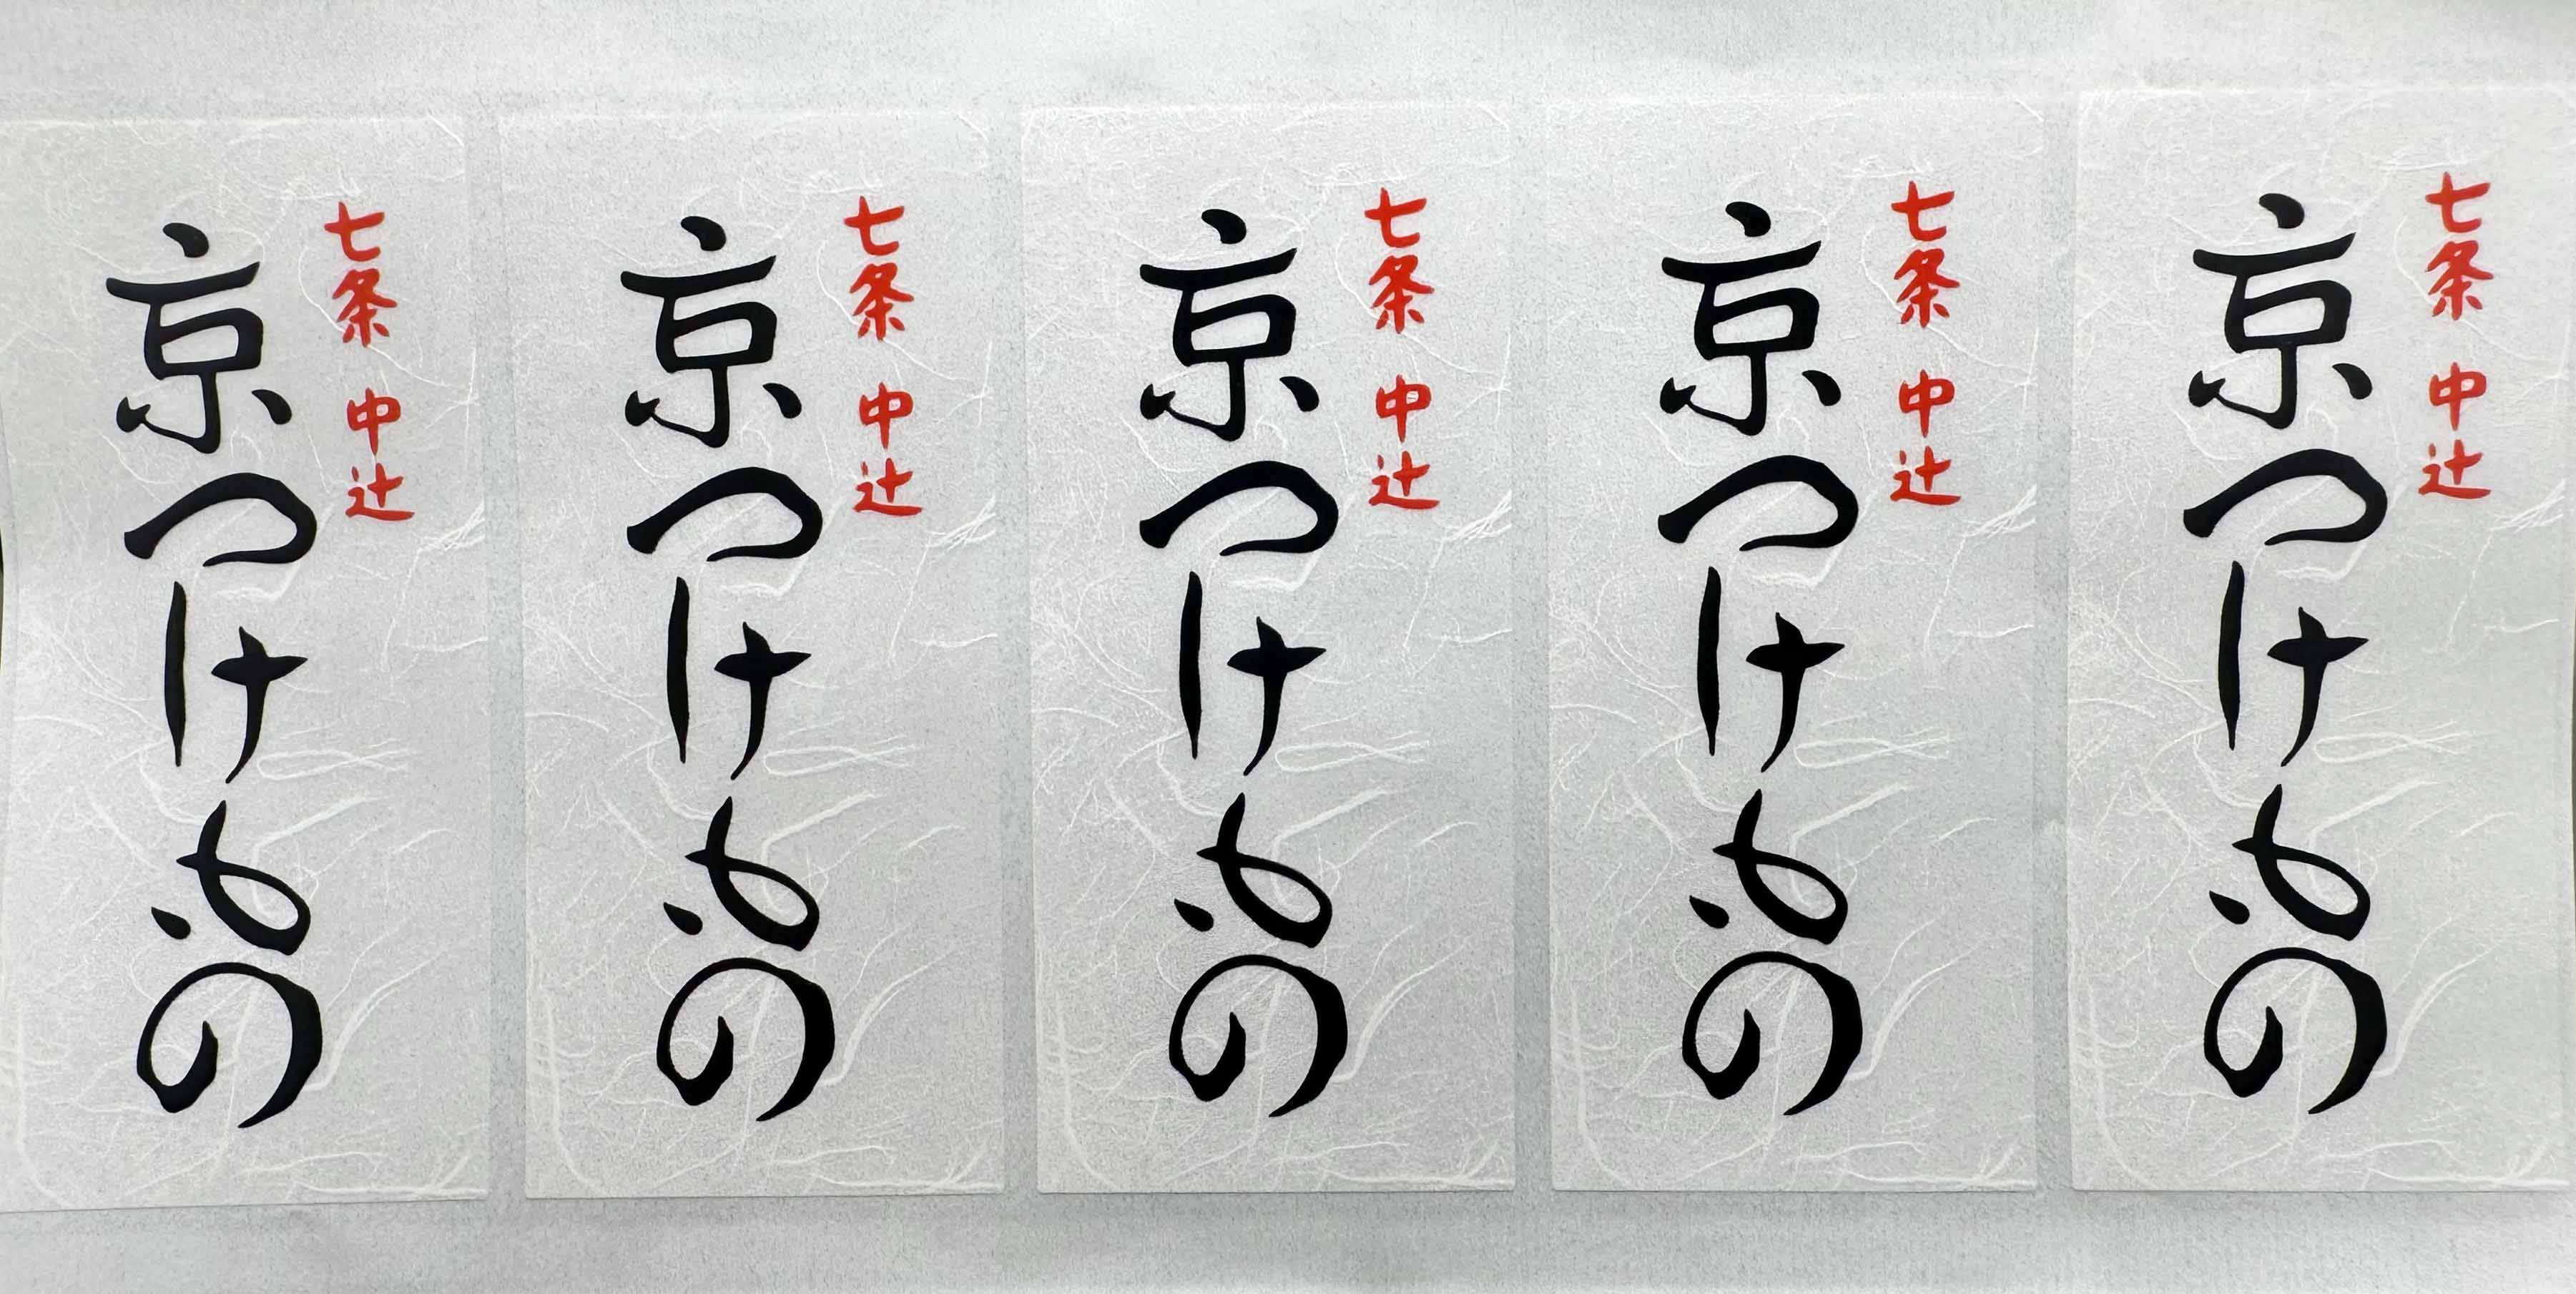 七条 中辻
京つけもの
七条 中辻
京つけもの
七条 中辻
京つけもの
七条 中辻
京つけもの
七条 中辻
京つけもの